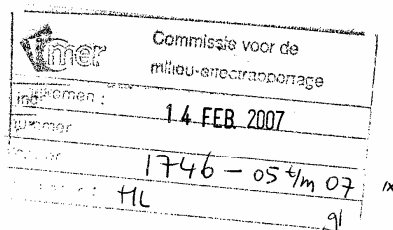 mer
Commissie voor de
milieu-effectrapportage
ingekomen :
14 FEB. 2007
nummer
dossier 1746 - 05 t/m 07
HL